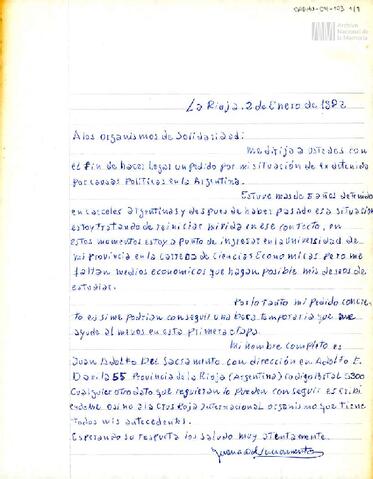 Archivo
Nacional de
la Memoria
La Rioja, 2 de Enero de 1982
A los organismos de Solidaridad:
Me dirijo a ustedes con
el fin de hacer llegar un pedido por mi situación de ex detenido
por causas Politicas en la Argentina.
Estuve mas de 5 años detenido
en carceles argentinas y despues de haber pasado esa situación
estoy tratando de reiniciar mi vida en ese contexto, en
estos momentos estoy a punto de ingresar en la Universidad de
mi provincia en la carrera de Ciencias Economicas. pero me
faltan medios economicos que hagan posible mis deseos de
estudiar.
Por lo tanto mi pedido concre_
to es si me podrian conseguir una beca temporaria que me
ayude al menos en esta primera etapa.
Mi nombre completo es
Juan Adolfo Del Sacramento. con dirección en Adolfo E.
Davila 55 Provincia de la Rioja (Argentina) codigo Postal 5300
Cualquier otro dato que requieran lo pueden conseguir escribi
endome o sino a la Cruz Roja Internacional organismo que tiene
todos mis antecedentes.
Esperando su respuesta los saludo muy atentamente.